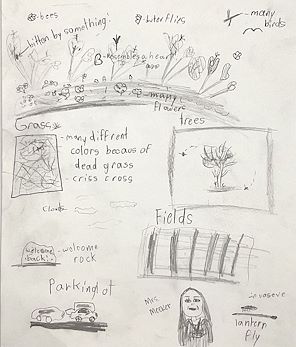 -bees
-buterflies
-many
birds
bitten by something!
Resembles a heart
many
flowers
Grass
trees
-many diffrent
colors becaus of
dead grass
-criss cross
Clouds
Fields
welcome
back!
-welcome
rock
Parking lot
Mrs.
invaseve
lantern
fly